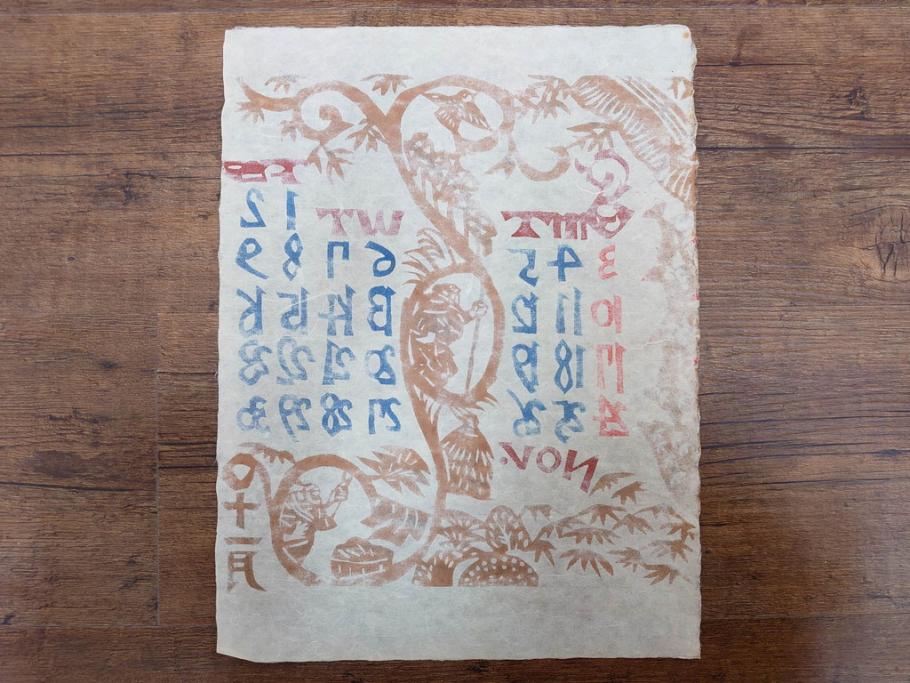 S M T W T F S
1 2
3 4 5 6 7 8 9
10 11 12 13 14 15 16
17 18 19 20 21 22 23
24 25 26 27 28 29 30
NOV.
十一月